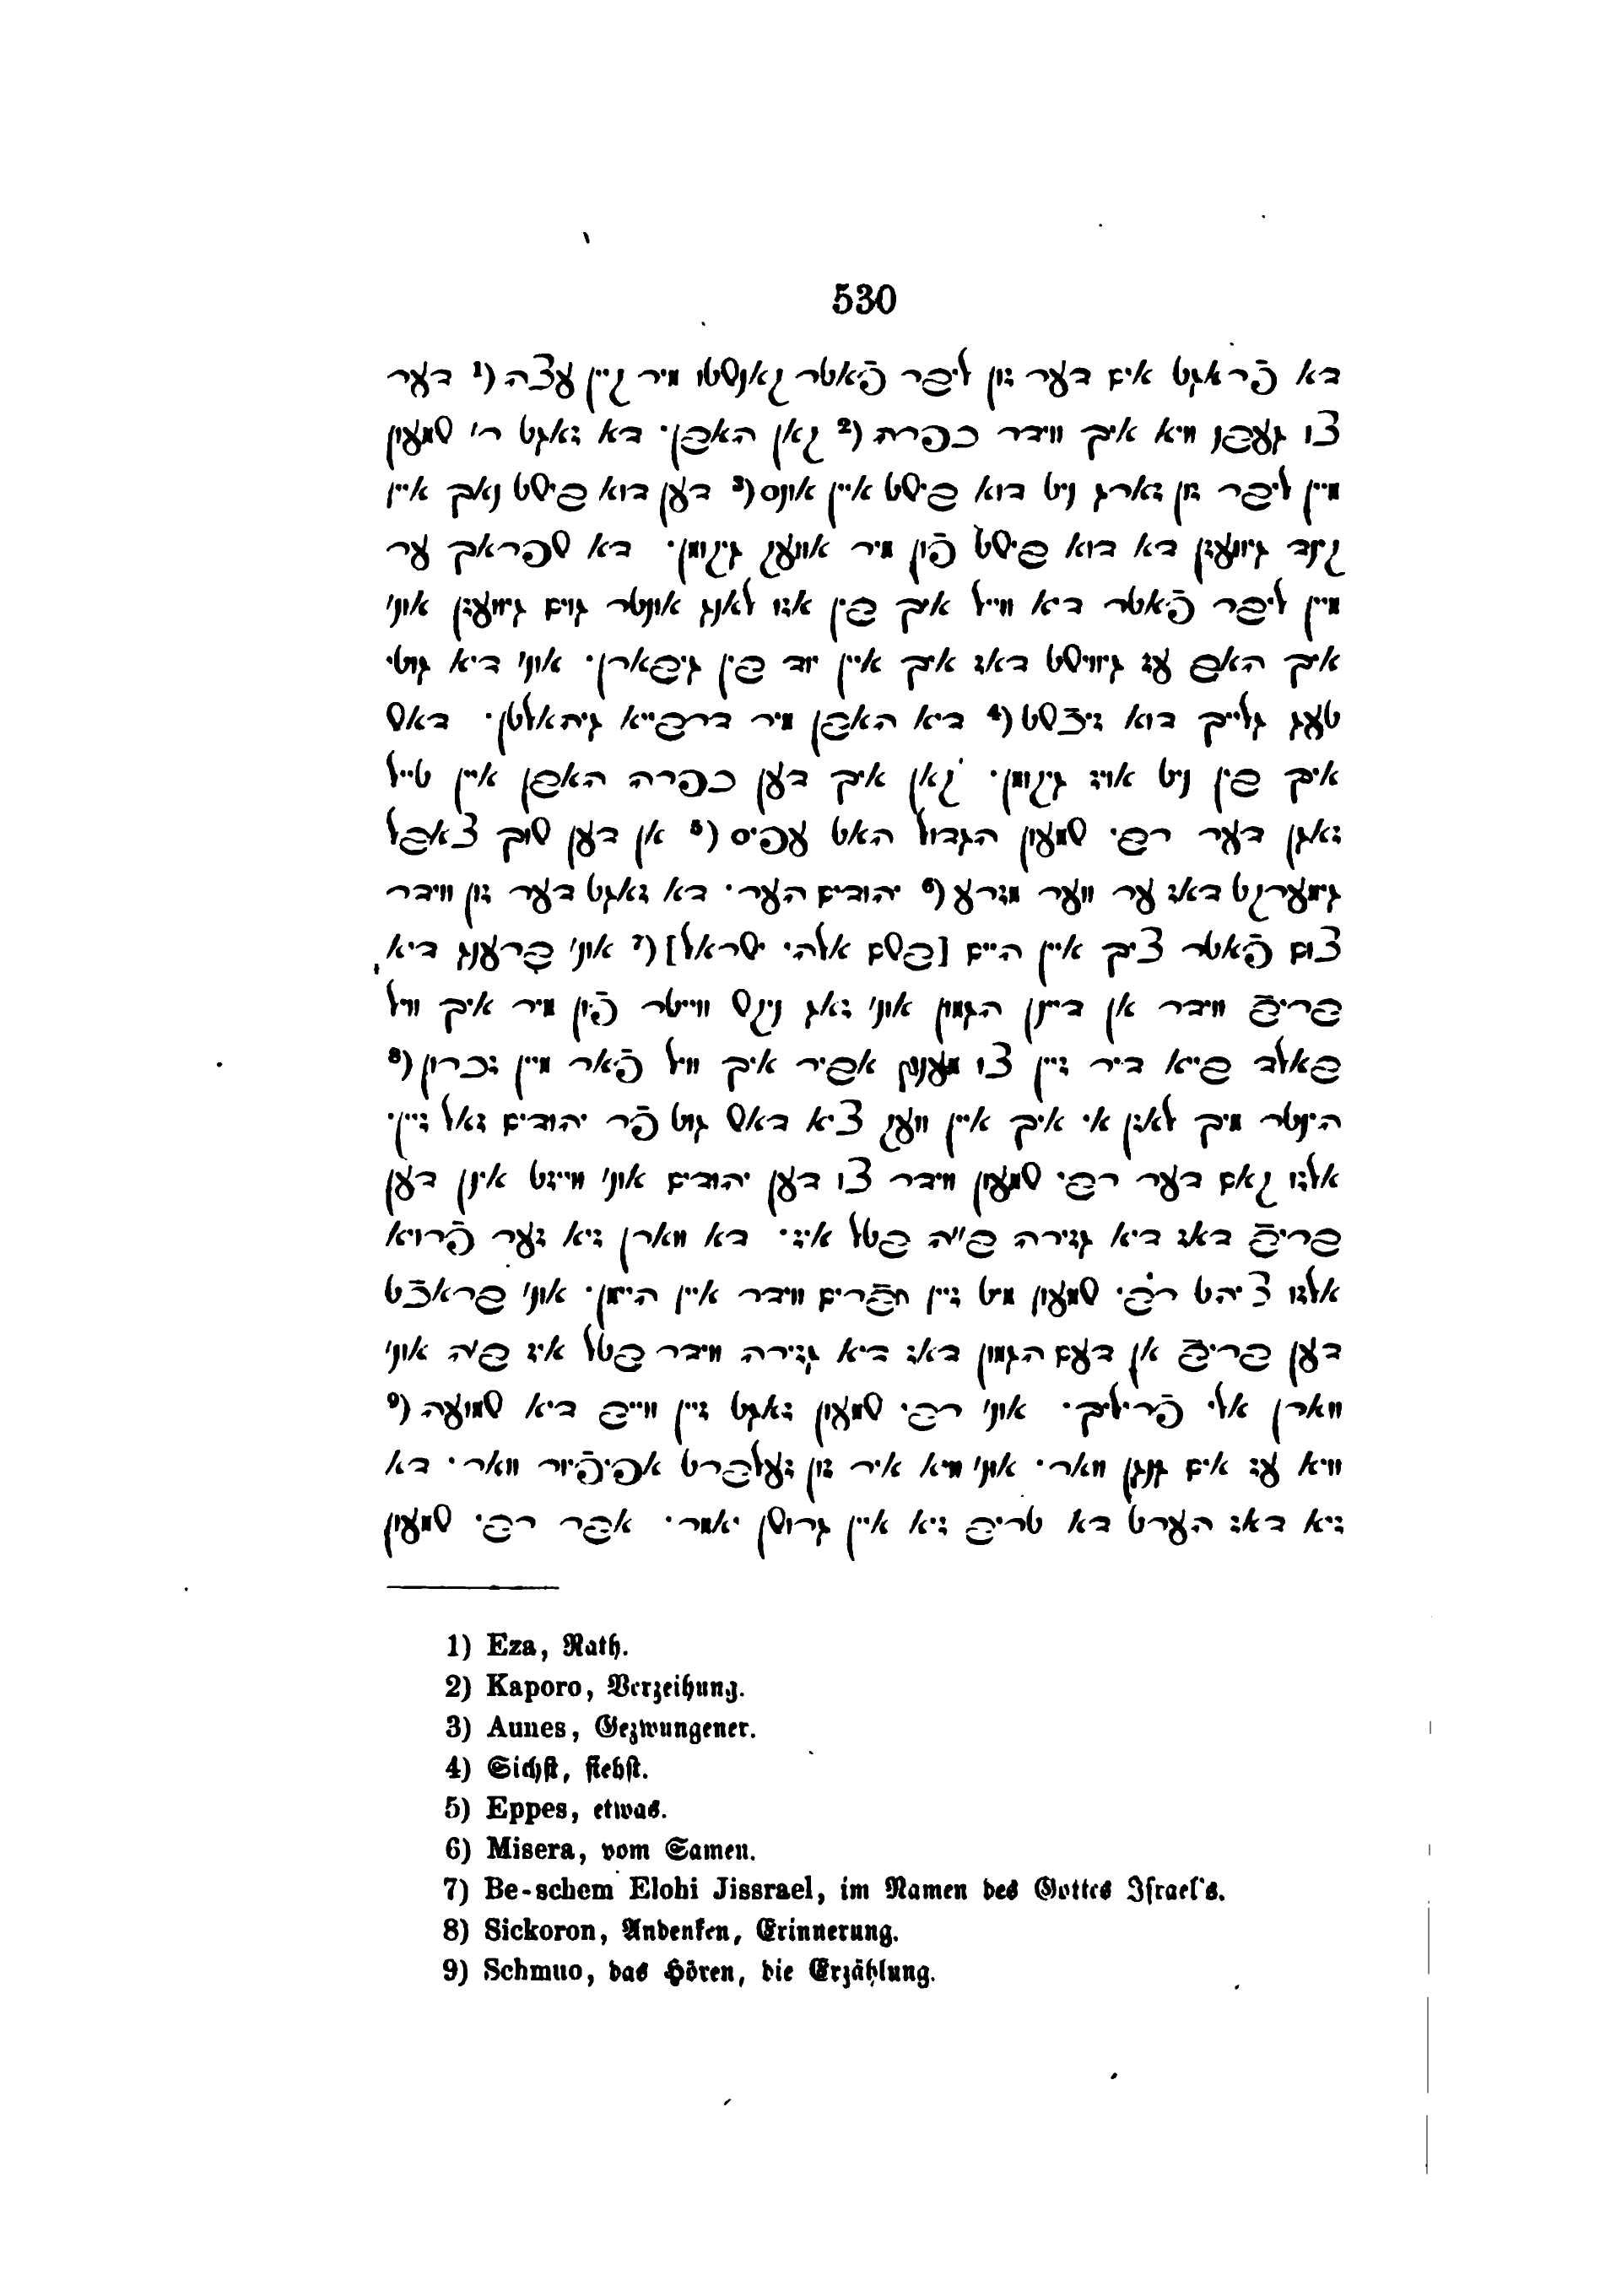 530
דא פֿראגט אים דער זון ליבר פֿאטר קאנסטו מיר קיין עצה (¹ דער
צו געבן וויא איך ווידר כפרה (² קאן האבן· דא זאגט ר' שמעון
מיין ליבר זון זארג ניט דוא ביסט איין אונס (³ דען דוא ביסט נאך איין
קינד גיוועזן דא דוא ביסט פֿון מיר אוועק גיקומן· דא שפראך ער
מיין ליבר פֿאטר דיא ווייל איך בין אזו לאנג אונטר גוים גיוועזן אונ'
איך האב עז גיוויסט דאז איך איין יוד בין גיבארן· אונ' דיא גוטי
טעג גלייך דוא זיכֿסט (⁴ דיא האבן מיר דרבייא גיהאלטן· דאש
איך בין ניט אויז גיקומן· קאן איך דען כפרה האבן איין טייל
זאגן דער רבי שמעון הגדול האט עפיס (⁵ אן דען שוך צאבל
גימערקט דאז ער ווער מזרע (⁶ יהודים הער· דא זאגט דער זון ווידר
צום פֿאטר ציך איין היים [בשם אלהי ישראל] (⁷ אונ' ברענג דיא
בריב ווידר אן דיינן הגמון אונ' זאג ניקס ווייטר פֿון מיר איך וויל
באלד בייא דיר זיין צו מענץ אביר איך וויל פֿאר מיין זכרון (⁸
הינטר מיך לאזן אי איך איין וועק ציא דאש גוט פֿר יהודים זאל זיין·
אלזו קאם דער רבי שמעון ווידר צו דען יהודים אונ' ווייזט אינן דען
בריב דאז דיא גזירה ב"ה בטל איז· דא ווארן זיא זער פֿרויא
אלזו ציהט רבי שמעון מיט זיין חבֿרים ווידר איין היימן· אונ' בראכֿט
דען בריב אן דעם הגמון דאז דיא גזירה ווידר בטל איז ב"ה אונ'
ווארן אלי פֿריליך· אונ' רבי שמעון זאגט זיין ווייב דיא שמועה (⁹
וויא עז אים גנגן וואר· אונ' וויא איר זון זעלברט אפיפֿיור וואר· דא
זיא דאז הערט דא טריב זיא איין גרושן יאמר· אבר רבי שמעון
1) Eza, Rath.
2) Kaporo, Verzeihung.
3) Aunes, Gezwungener.
4) Sichst, siehst.
5) Eppes, etwas.
6) Misera, vom Samen.
7) Be-schem Elohi Jissrael, im Namen des Gottes Israel's.
8) Sickoron, Andenken, Erinnerung.
9) Schmuo, das Hören, die Erzählung.